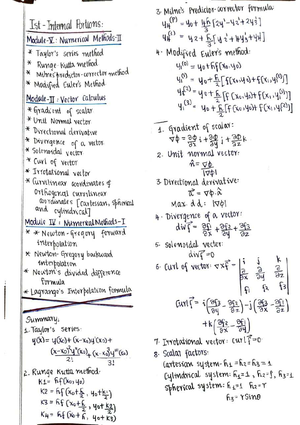 Ist - Internal Portions:
Module-V: Numerical Methods-II
* Taylor's series method
* Runge Kutta method
* Milne's Predictor-corrector method
* Modified Euler's Method
Module-II: Vector Calculus
* Gradient of scalar
* Unit Normal vector
* Directional derivative
* Divergence of a vector
* Solenoidal vector
* Curl of vector
* Irrotational vector
* Curvilinear coordinates &
orthogonal curvilinear
coordinates [Cartesian, spherical
and cylindrical]
Module IV: Numerical Methods-I
* Newton-Gregory forward
interpolation
* Newton-Gregory backward
interpolation
* Newton's divided difference
formula
* Lagrange's Interpolation formula
Summary,
1. Taylor's series:
y(x) = y(x₀) + (x-x₀)y'(x₀) +
(x-x₀)²y''(x₀)/2! + (x-x₀)³y'''(x₀)/3!
2. Runge Kutta method:
K1 = hf(x₀, y₀)
K2 = hf(x₀+h/2, y₀+k1/2)
K3 = hf(x₀+h/2, y₀+k2/2)
K4 = hf(x₀+h, y₀+k3)
3. Milne's Predictor-corrector formula:
4. Modified Euler's method:
y₁⁽⁰⁾ = y₀+hf(x₀,y₀)
y₁⁽¹⁾ = y₀+h/2[f(x₀,y₀)+f(x₁,y₁⁽⁰⁾)]
y₁⁽²⁾ = y₀+h/2[f(x₀,y₀)+f(x₁,y₁⁽¹⁾)]
y₁⁽³⁾ = y₀+h/2[f(x₀,y₀)+f(x₁,y₁⁽²⁾)]
1. Gradient of scalar:
∇φ = ∂φ/∂x i + ∂φ/∂y j + ∂φ/∂z k
2. Unit normal vector:
n̂ = ∇φ/|∇φ|
3. Directional derivative:
= ∇φ.
Max d.d: |∇φ|
4. Divergence of a vector:
div f⃗ = ∂f1/∂x + ∂f2/∂y + ∂f3/∂z
5. Solenoidal vector:
div f⃗ = 0
6. Curl of vector: ∇×f⃗ = | i j k |
| ∂/∂x ∂/∂y ∂/∂z |
| f1 f2 f3 |
Curl f⃗ = i(∂f3/∂y - ∂f2/∂z) - j(∂f3/∂x - ∂f1/∂z)
+ k(∂f2/∂x - ∂f1/∂y)
7. Irrotational vector: curl f⃗ = 0
8. Scalar factors:
Cartesian system - h1 = h2 = h3 = 1
Cylindrical system - h1 = 1, h2 = ρ, h3 = 1
Spherical system: h1 = 1 h2 = r
h3 = r sinθ